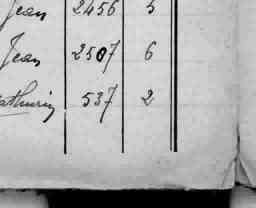 Jean 2456 5
Jean 2507 6
Mathurin 537 2